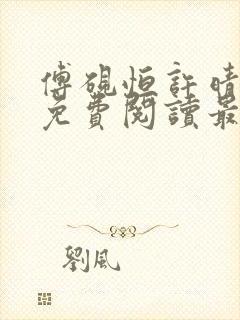 傅硯恒許晴
免費閱讀最
劉風